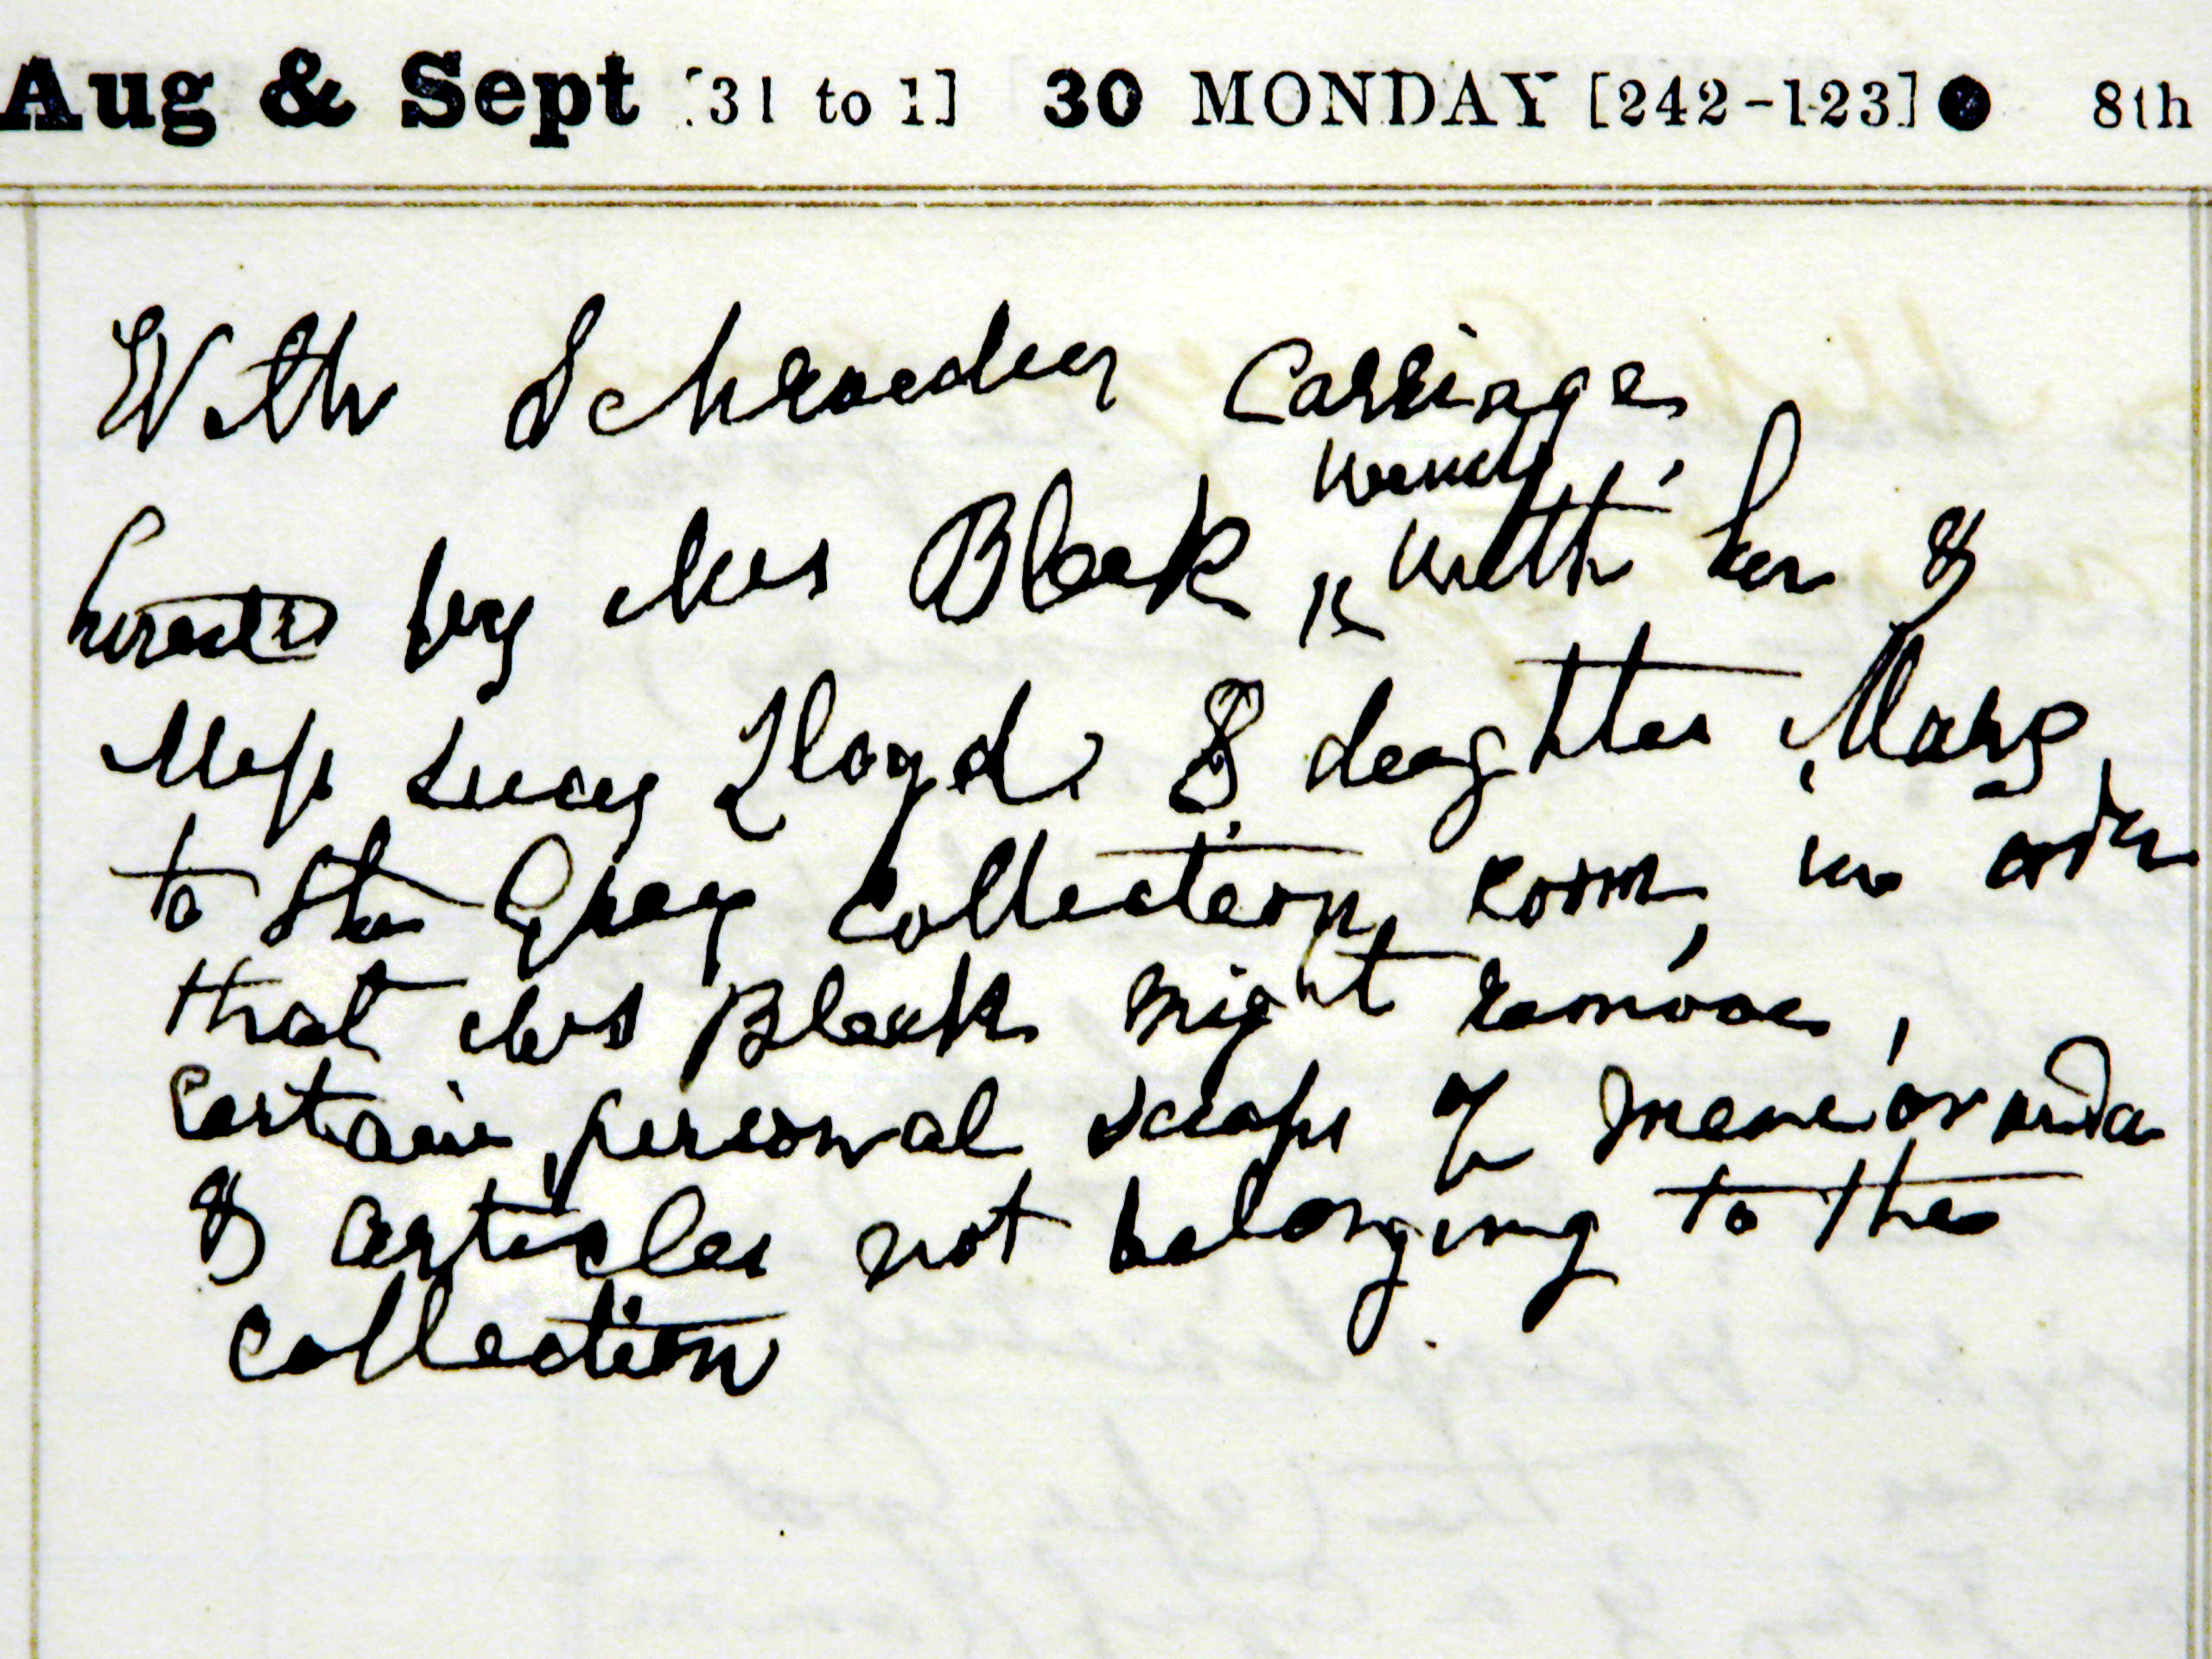 Aug & Sept [31 to 1] 30 MONDAY [242-123] 8th
With Schroeder Carriage
hired by Mrs Bleek, went with her &
Miss Lucy Lloyd & daughter Marg
to the Grey Collection room, in order
that Mrs Bleek might remove,
certain personal scraps of memoranda
& articles not belonging to the
collection